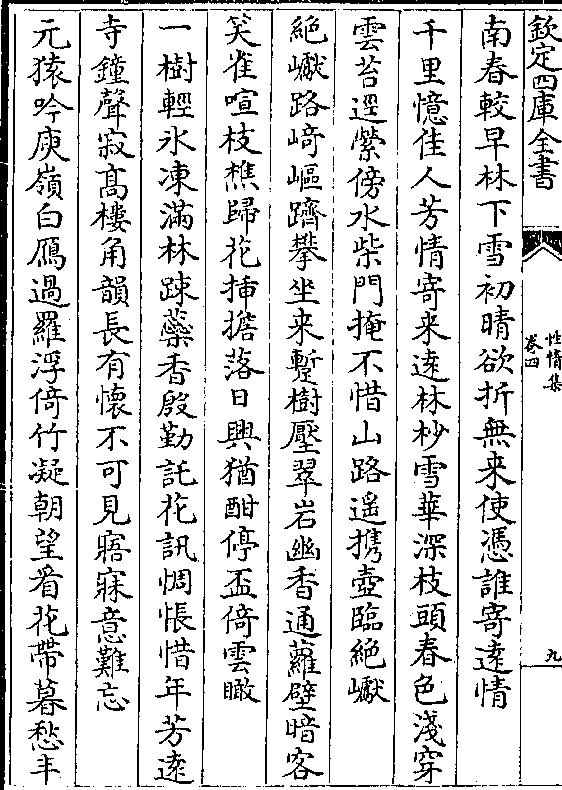 欽定四庫全書
性情集
卷四
九
南春較早林下雪初晴欲折無來使憑誰寄逺情
千里憶佳人芳情寄来逺林杪雪華深枝頭春色淺穿
雲苔逕縈傍水柴門掩不惜山路遥携壺臨絶巘
絶巘路﨑嶇躋攀坐来蹔樹壓翠岩幽香通蘿壁暗客
笑雀喧枝樵歸花挿擔落日興猶酣停盃倚雲瞰
一樹輕氷凍滿林踈蘂香殷勤託花訊惆悵惜年芳逺
寺鐘聲寂髙樓角韻長有懷不可見寤寐意難忘
元猿吟庾嶺白鴈過羅浮倚竹凝朝望看花帶暮愁丰